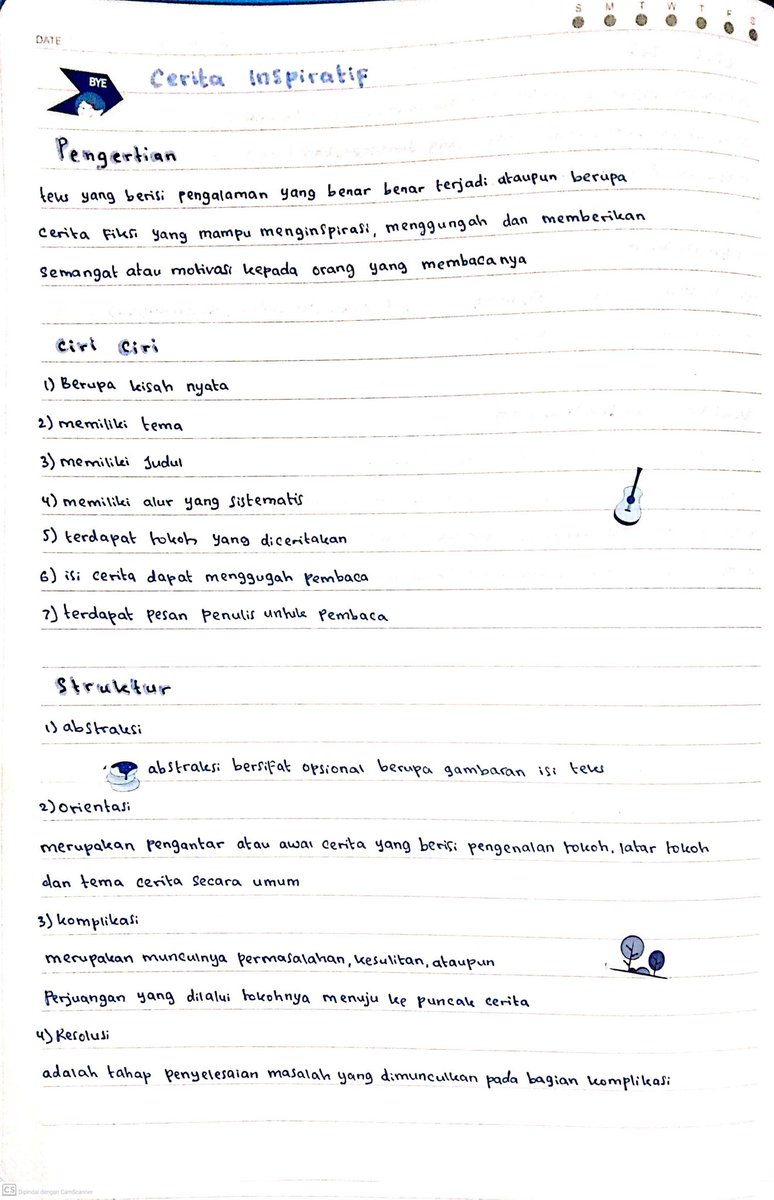 S M T W T F S
DATE
BYE
Cerita Inspiratif
Pengertian
teks yang berisi pengalaman yang benar benar terjadi ataupun berupa
cerita fiksi yang mampu menginspirasi, menggungah dan memberikan
semangat atau motivasi kepada orang yang membacanya
Ciri Ciri
1) Berupa kisah nyata
2) memiliki tema
3) memiliki Judul
4) memiliki alur yang sistematis
5) terdapat tokoh yang diceritakan
6) isi cerita dapat menggugah pembaca
7) terdapat pesan penulis untuk pembaca
Struktur
1) abstraksi
abstraksi bersifat opsional berupa gambaran isi teks
2) orientasi
merupakan pengantar atau awal cerita yang berisi pengenalan tokoh, latar tokoh
dan tema cerita secara umum
3) komplikasi
merupakan munculnya permasalahan, kesulitan, ataupun
Perjuangan yang dilalui tokohnya menuju ke puncak cerita
4) Resolusi
adalah tahap penyelesaian masalah yang dimunculkan pada bagian komplikasi
CS Dipindai dengan CamScanner